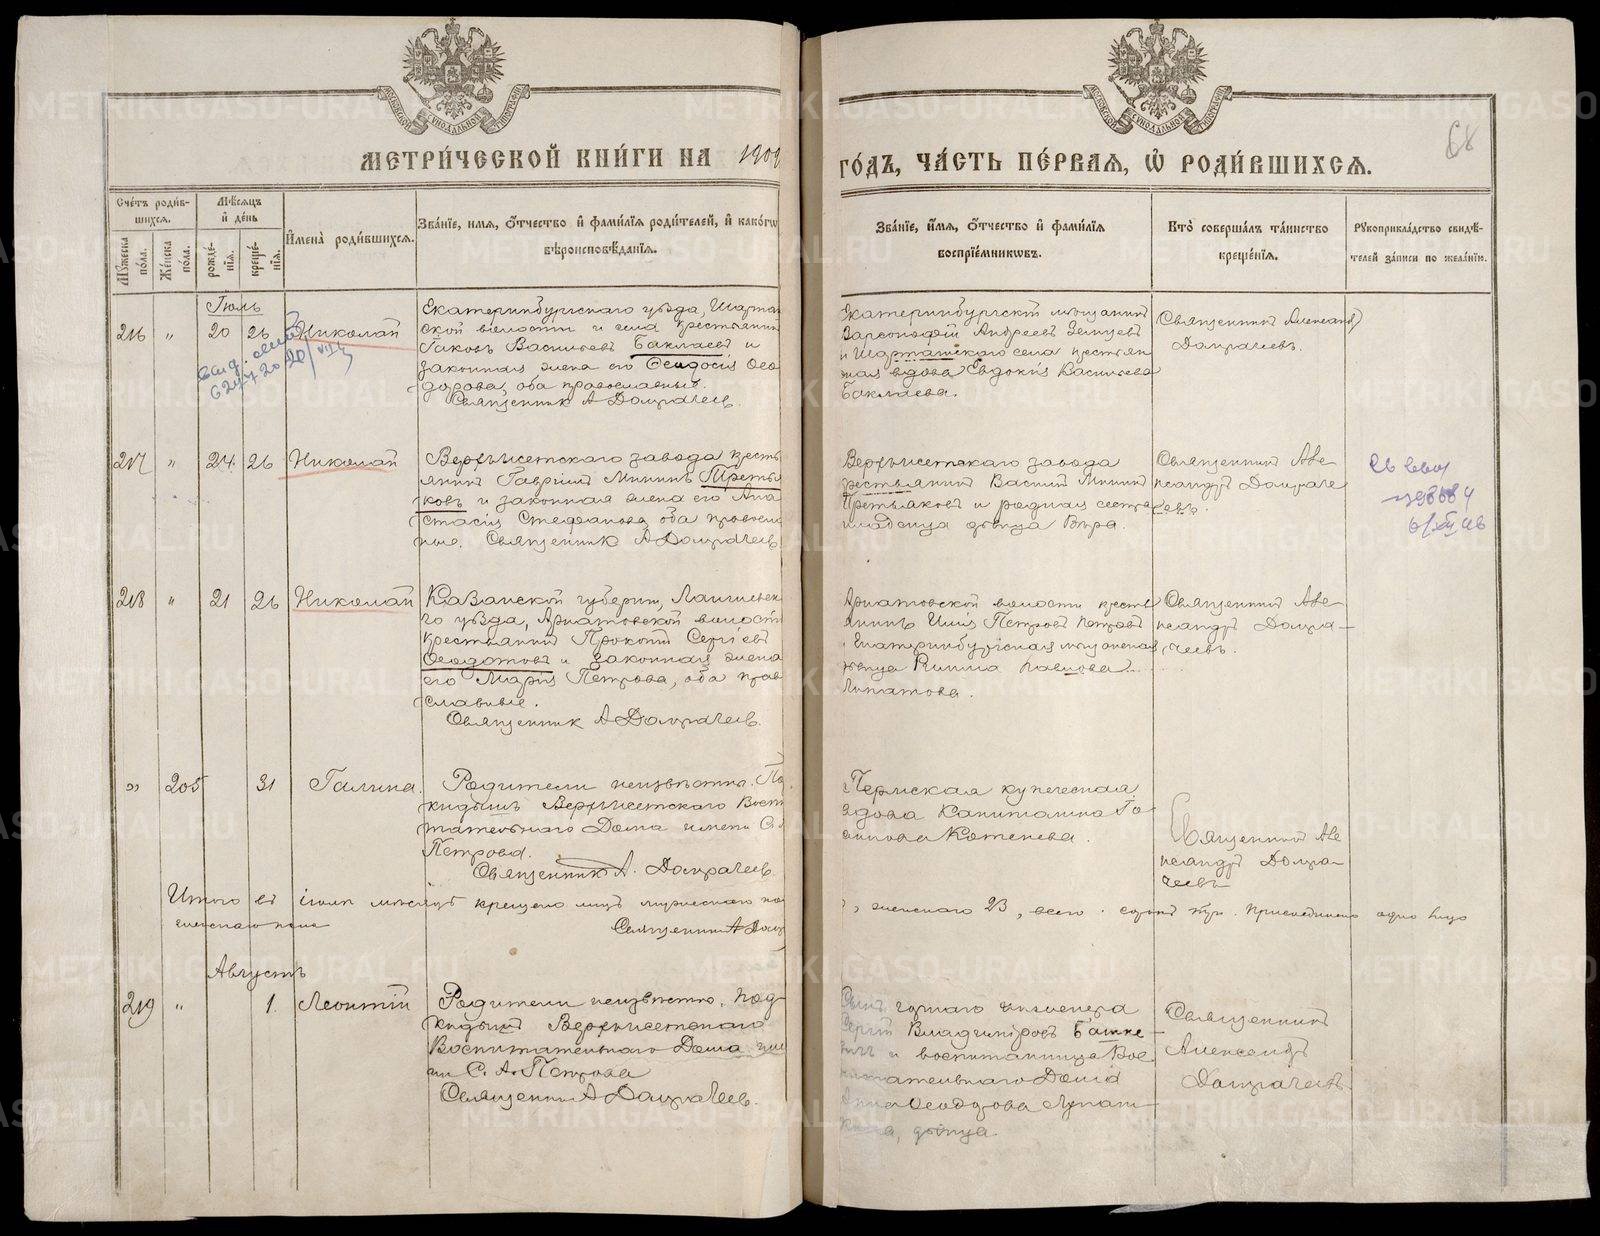 МЕТРИ́ЧЕСКОЙ КНИ́ГИ НА 1909
ГО́ДЪ, ЧА́СТЬ ПЕ́РВАЯ, Ѡ҆ РОДИ́ВШИХСЯ.
68
Сче́тъ роди́в-
шихся.
Мꙋ́жеска по́ла.
Же́нска по́ла.
Мѣ́сяцъ
и҆ де́нь
рожде́-
нїя.
креще́-
нїя.
И҆мена̀ роди́вшихся.
Зва́нїе, и҆мя, ѻ҆́тчество и҆ фами́лїя роди́телей, и҆ како́гѡ
вѣроисповѣ́данїя.
Зва́нїе, и҆́мя, ѻ҆́тчество и҆ фами́лїя
воспрїе́мниковъ.
Кто̀ соверша́лъ та́инство
креще́нїя.
Рꙋкоприкла́дство свидѣ́-
телей за́писи по жела́нїю.
Іюль
216 " 20 26 Николай
Екатеринбургскаго уѣзда, Шарташ
ской волости и села крестьянинъ
Іаковъ Васильевъ Баклаевъ и
законная жена его Ѳеодосія Ѳео
дорова, оба православные.
Священникъ А Домрачеевъ.
Екатеринбургскій мѣщанинъ
Варсонофій Андреевъ
и Шарташскаго села крестьян
ская вдова Евдокія Васильева
Баклаева.
Священникъ Александръ
Домрачеевъ.
217 " 24. 26 Николай
Верхъисетскаго завода кресть
янинъ Гавріилъ Мининъ Третья
ковъ и законная жена его Ана
стасія Стефанова, оба православ
ные. Священникъ А Домрачеевъ
Верхъисетскаго завода
крестьянинъ Василій Мининъ
Третьяковъ и родная сестра
младенца дѣвица Вѣра.
Священникъ Але
ксандръ Домраче
евъ.
218 " 21 26 Николай
Казанской губерніи, Лаишевска
го уѣзда, волости
крестьянинъ Прокопій Сергіевъ
Ѳеодотовъ и законная жена
его Марія Петрова, оба право
славные.
Священникъ А Домрачеевъ.
волости кресть
янинъ Илія Петровъ Петровъ
Екатеринбургская мѣщанская
дѣвица Римма Павлова
Липатова.
Священникъ Але
ксандръ Домра-
чеевъ.
" 205 31 Галина.
Родители неизвѣстны. По
кидышъ Верхъисетскаго Воспи
тательнаго Дома имени С.
Петрова.
Священникъ А. Домрачеевъ
Пермская купеческая
вдова Капиталина Іо
аннова Котенева.
Священникъ Але
ксандръ Домра-
чеевъ
Итого въ іюлѣ мѣсяцѣ крещено лицъ мужескаго по
, женскаго 23, всего Присоединено одно лицо
женскаго пола
Священникъ А Домр
Августъ
219 " 1. Леонтій
Родители неизвѣстны. Под-
кидышъ Верхъисетскаго
Воспитательнаго Дома име
ни С. А. Петрова
Священникъ А Домрачеевъ.
Сынъ горнаго инженера
Сергій Владиміровъ Батке-
вичъ и воспитанница Вос
питательнаго Дома
Анна Ѳеодорова
дѣвица.
Священникъ
Александръ
Домрачеевъ
METRIKI.GASO-URAL.RU